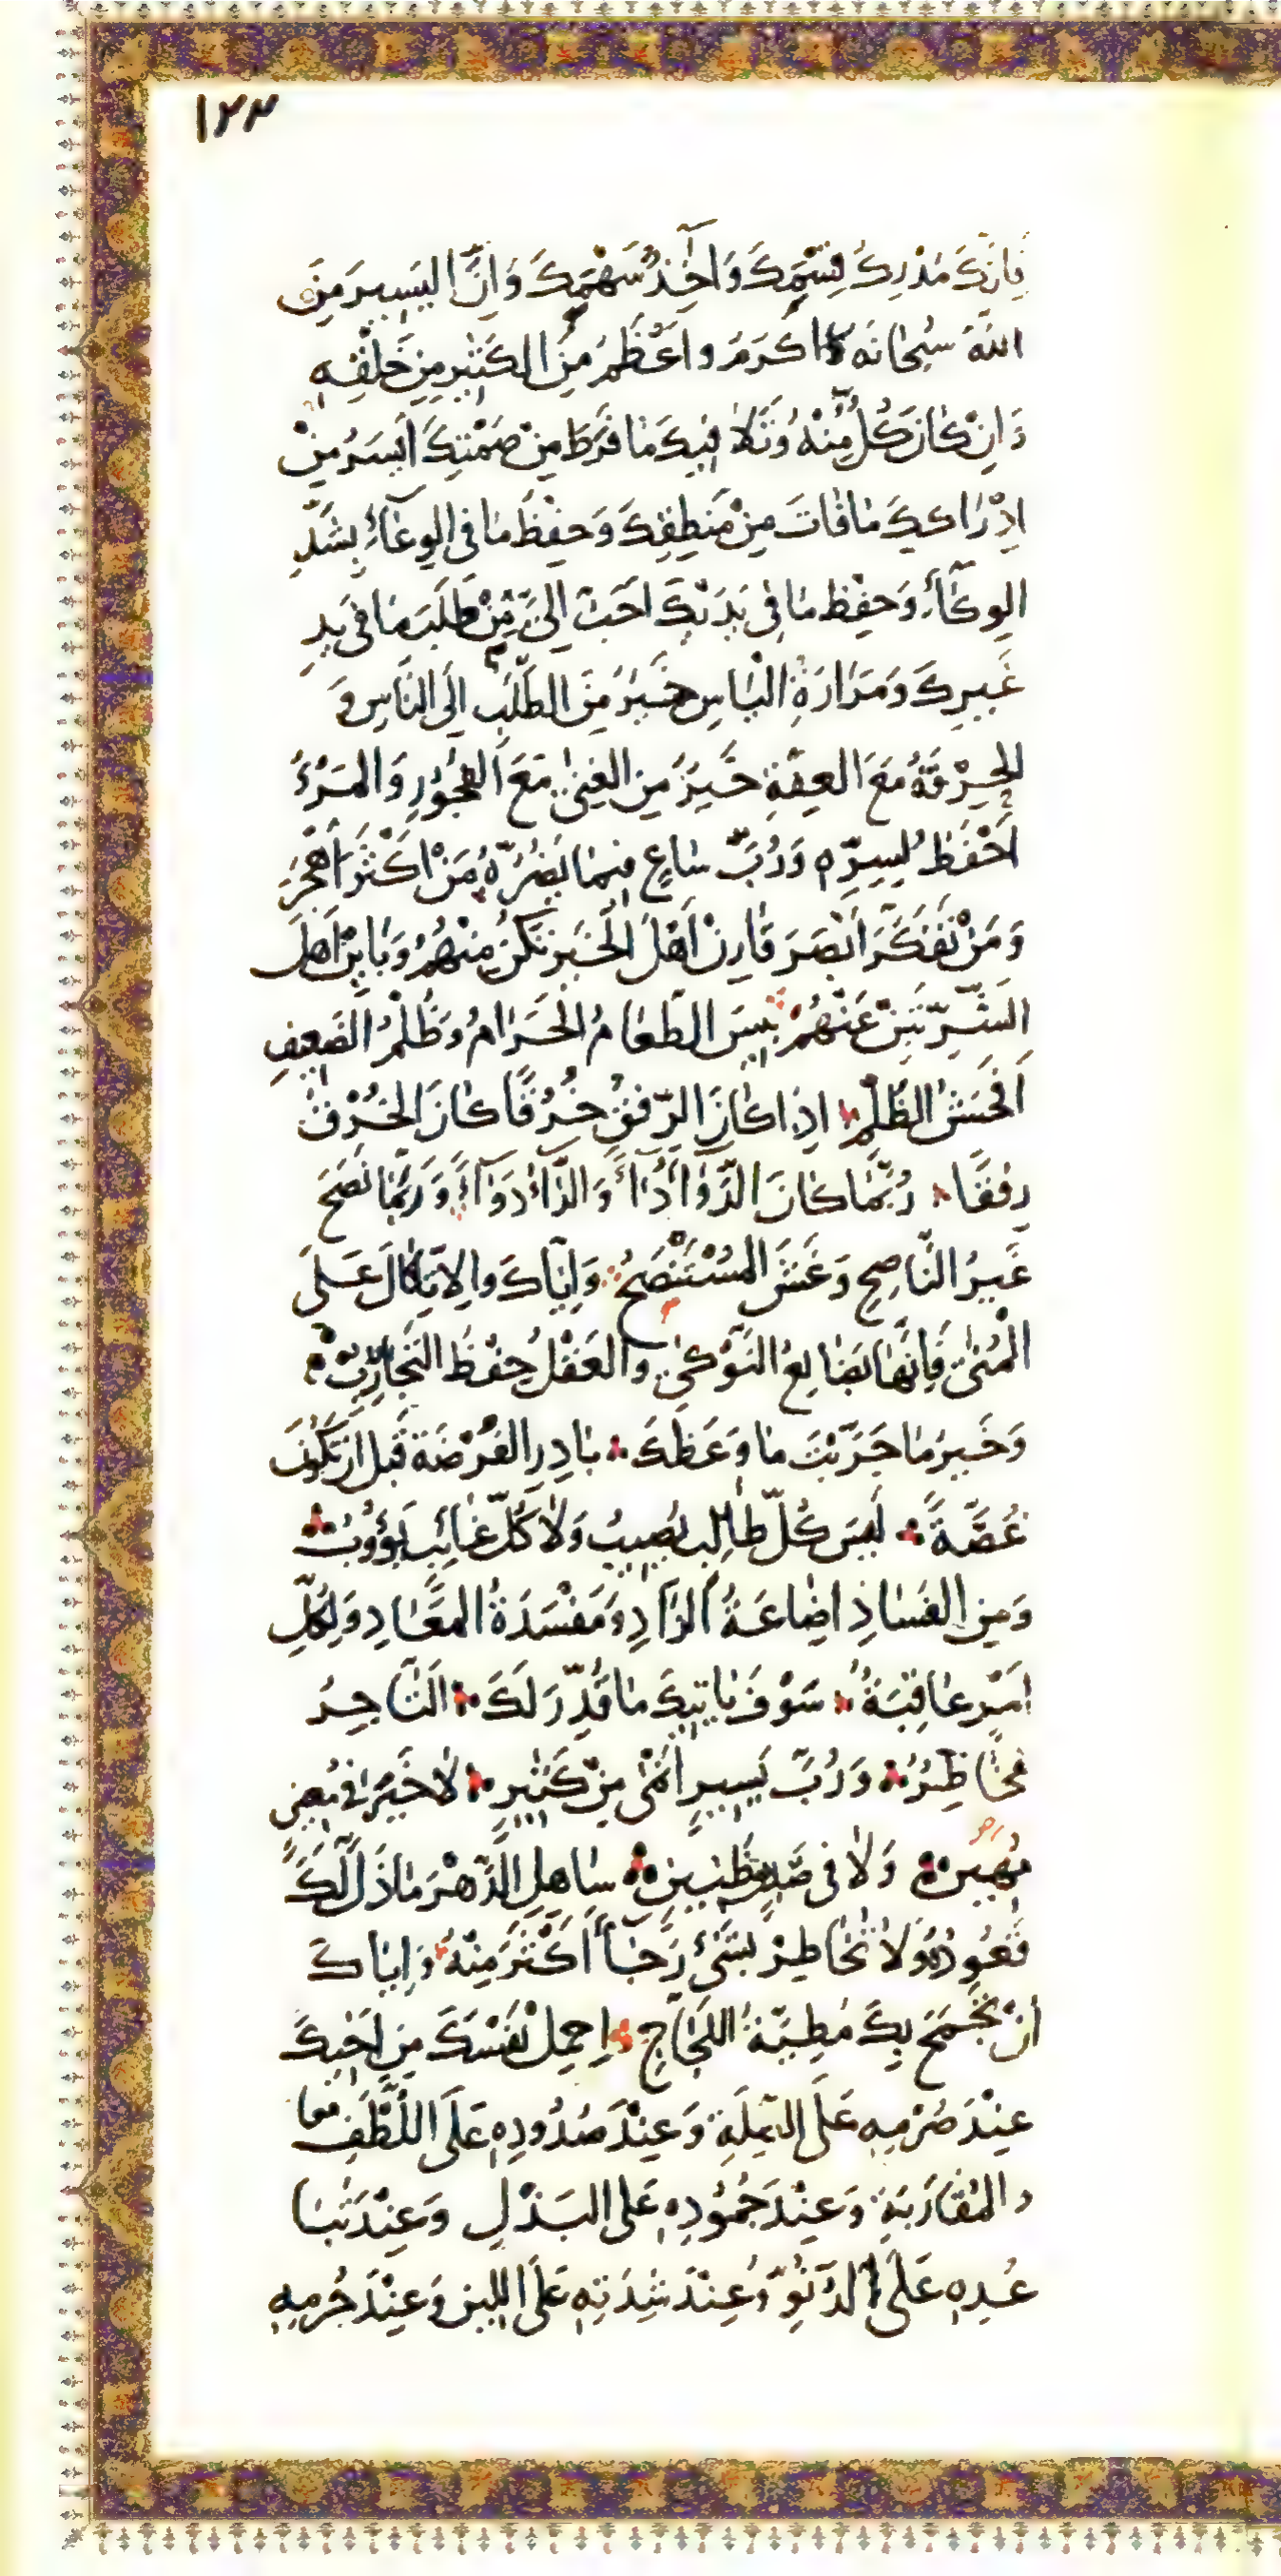 ١٢٣
فَإِنَّكَ مُدْرِكٌ قِسْمَكَ وَآخِذٌ سَهْمَكَ وَإِنَّ الیَسِیرَ مِنَ
اللهِ سُبْحَانَه اکرَمُ واَعْظَمُ مِنَ الکَثِیرِ مِنْ خَلْقِهِ
وَاِنْ کَانَ کُلٌّ مِنْهُ وَتَلَافِیكَ مَا فَرَطَ مِنْ صَمْتِكَ اَیسَرُ مِنْ
اِدْرَاکِكَ مَا فَاتَ مِنْ مَنطِقِكَ وَحِفْظُ مَا فِی الوِعَآءِ بِشَدِّ
الوِکَآءِ وَحِفْظُ مَا فِی یَدَیْكَ اَحَبُّ اِلَیَّ مِنْ طَلَبِ مَا فِی یَدِ
غَیرِكَ وَمَرَارَةُ الْیَاسِ خَیرٌ مِنَ الطَّلَبِ اِلَی النَّاسِ وَ
الحِرْفَةُ مَعَ العِفَّةِ خَیرٌ مِنَ الغِنٰی مَعَ الفُجُورِ وَالمَرْءُ
اَحْفَظُ لِسِرِّهِ وَرُبَّ سَاعٍ فِیمَا یَضُرُّهُ مَنْ اَکْثَرَ اَهْجَرَ
وَمَنْ تَفَکَّرَ اَبْصَرَ قَارِنْ اَهْلَ الْخَیرِ تَکُنْ مِنْهُمْ وَبَایِنْ اَهلَ
الشَّرِّ تَبِنْ عَنْهُمْ بِئسَ الطَّعَامُ الْحَرَامُ وَظُلْمُ الضَعِیفِ
اَفْحَشُ الظُّلْمِ اِذَا کَانَ الرِّفْقُ خُرْقًا کَانَ الخُرْقُ
رِفْقًا رُبَّمَا کَانَ الدَّوَاءُ دَآءً وَالدَّآءُ دَوَآءً وَرُبَّمَا نَصَحَ
غَیرُ النَّاصِحِ وَغَشَّ المُسْتَنْصَحُ وَاِیَّاكَ والِاتِّکَالَ عَلَی
الْمُنٰی فَاِنَّهَا بَضَایِعُ النَّوْکٰی وَالعَقْلُ حِفْظُ التَّجَارِبِ
وَخَیرُ مَا جَرَّبْتَ مَا وَعَظَكَ بَادِرِ الفُرْصَةَ قَبلَ اَنْ تَکُونَ
غُصَّةً لَیسَ کُلُّ طَالِبٍ یُصِیبُ وَلَا کُلُّ غَائِبٍ یَؤُوبُ
وَمِنَ الفَسَادِ اِضَاعَةُ الزَّادِ وَمَفْسَدَةُ المَعَادِ وَلِکُلِّ
اَمْرٍ عَاقِبَةٌ سَوْفَ یَاتِیكَ مَا قُدِّرَ لَكَ اَلتَّاجِرُ
مُخَاطِرٌ وَرُبَّ یَسِیرٍ اَنْمٰی مِنْ کَثِیرٍ لَا خَیرَ فِی مُعِینٍ
مَهِینٍ وَلَا فِی صَدِیقٍ ظَنِینٍ سَاهِلِ الدَّهْرَ مَا ذَلَّ لَكَ
قَعُودُهُ وَلَا تُخَاطِرْ بِشَیْءٍ رَجَآءَ اَکْثَرَ مِنْهُ وَاِیَّاكَ
اَنْ تَجْمَحَ بِكَ مَطِیَّةُ اللَّجَاجِ اِحمِلْ نَفْسَكَ مِنْ اَخِیكَ
عِنْدَ صَرْمِهِ عَلَی الصِّلَةِ وَعِنْدَ صُدُودِهِ عَلَی اللَّطَفِ
والمُقَارَبَةِ وَعِنْدَ جُمُودِهِ عَلَی البَذْلِ وَعِنْدَ تَبَا
عُدِهِ عَلَی الدُّنُوِّ وَعِنْدَ شِدَّتِهِ عَلَی اللِّینِ وَعِنْدَ جُرمِهِ